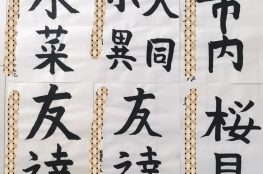 市内
大同
小異
水菜
桜
友達
友達